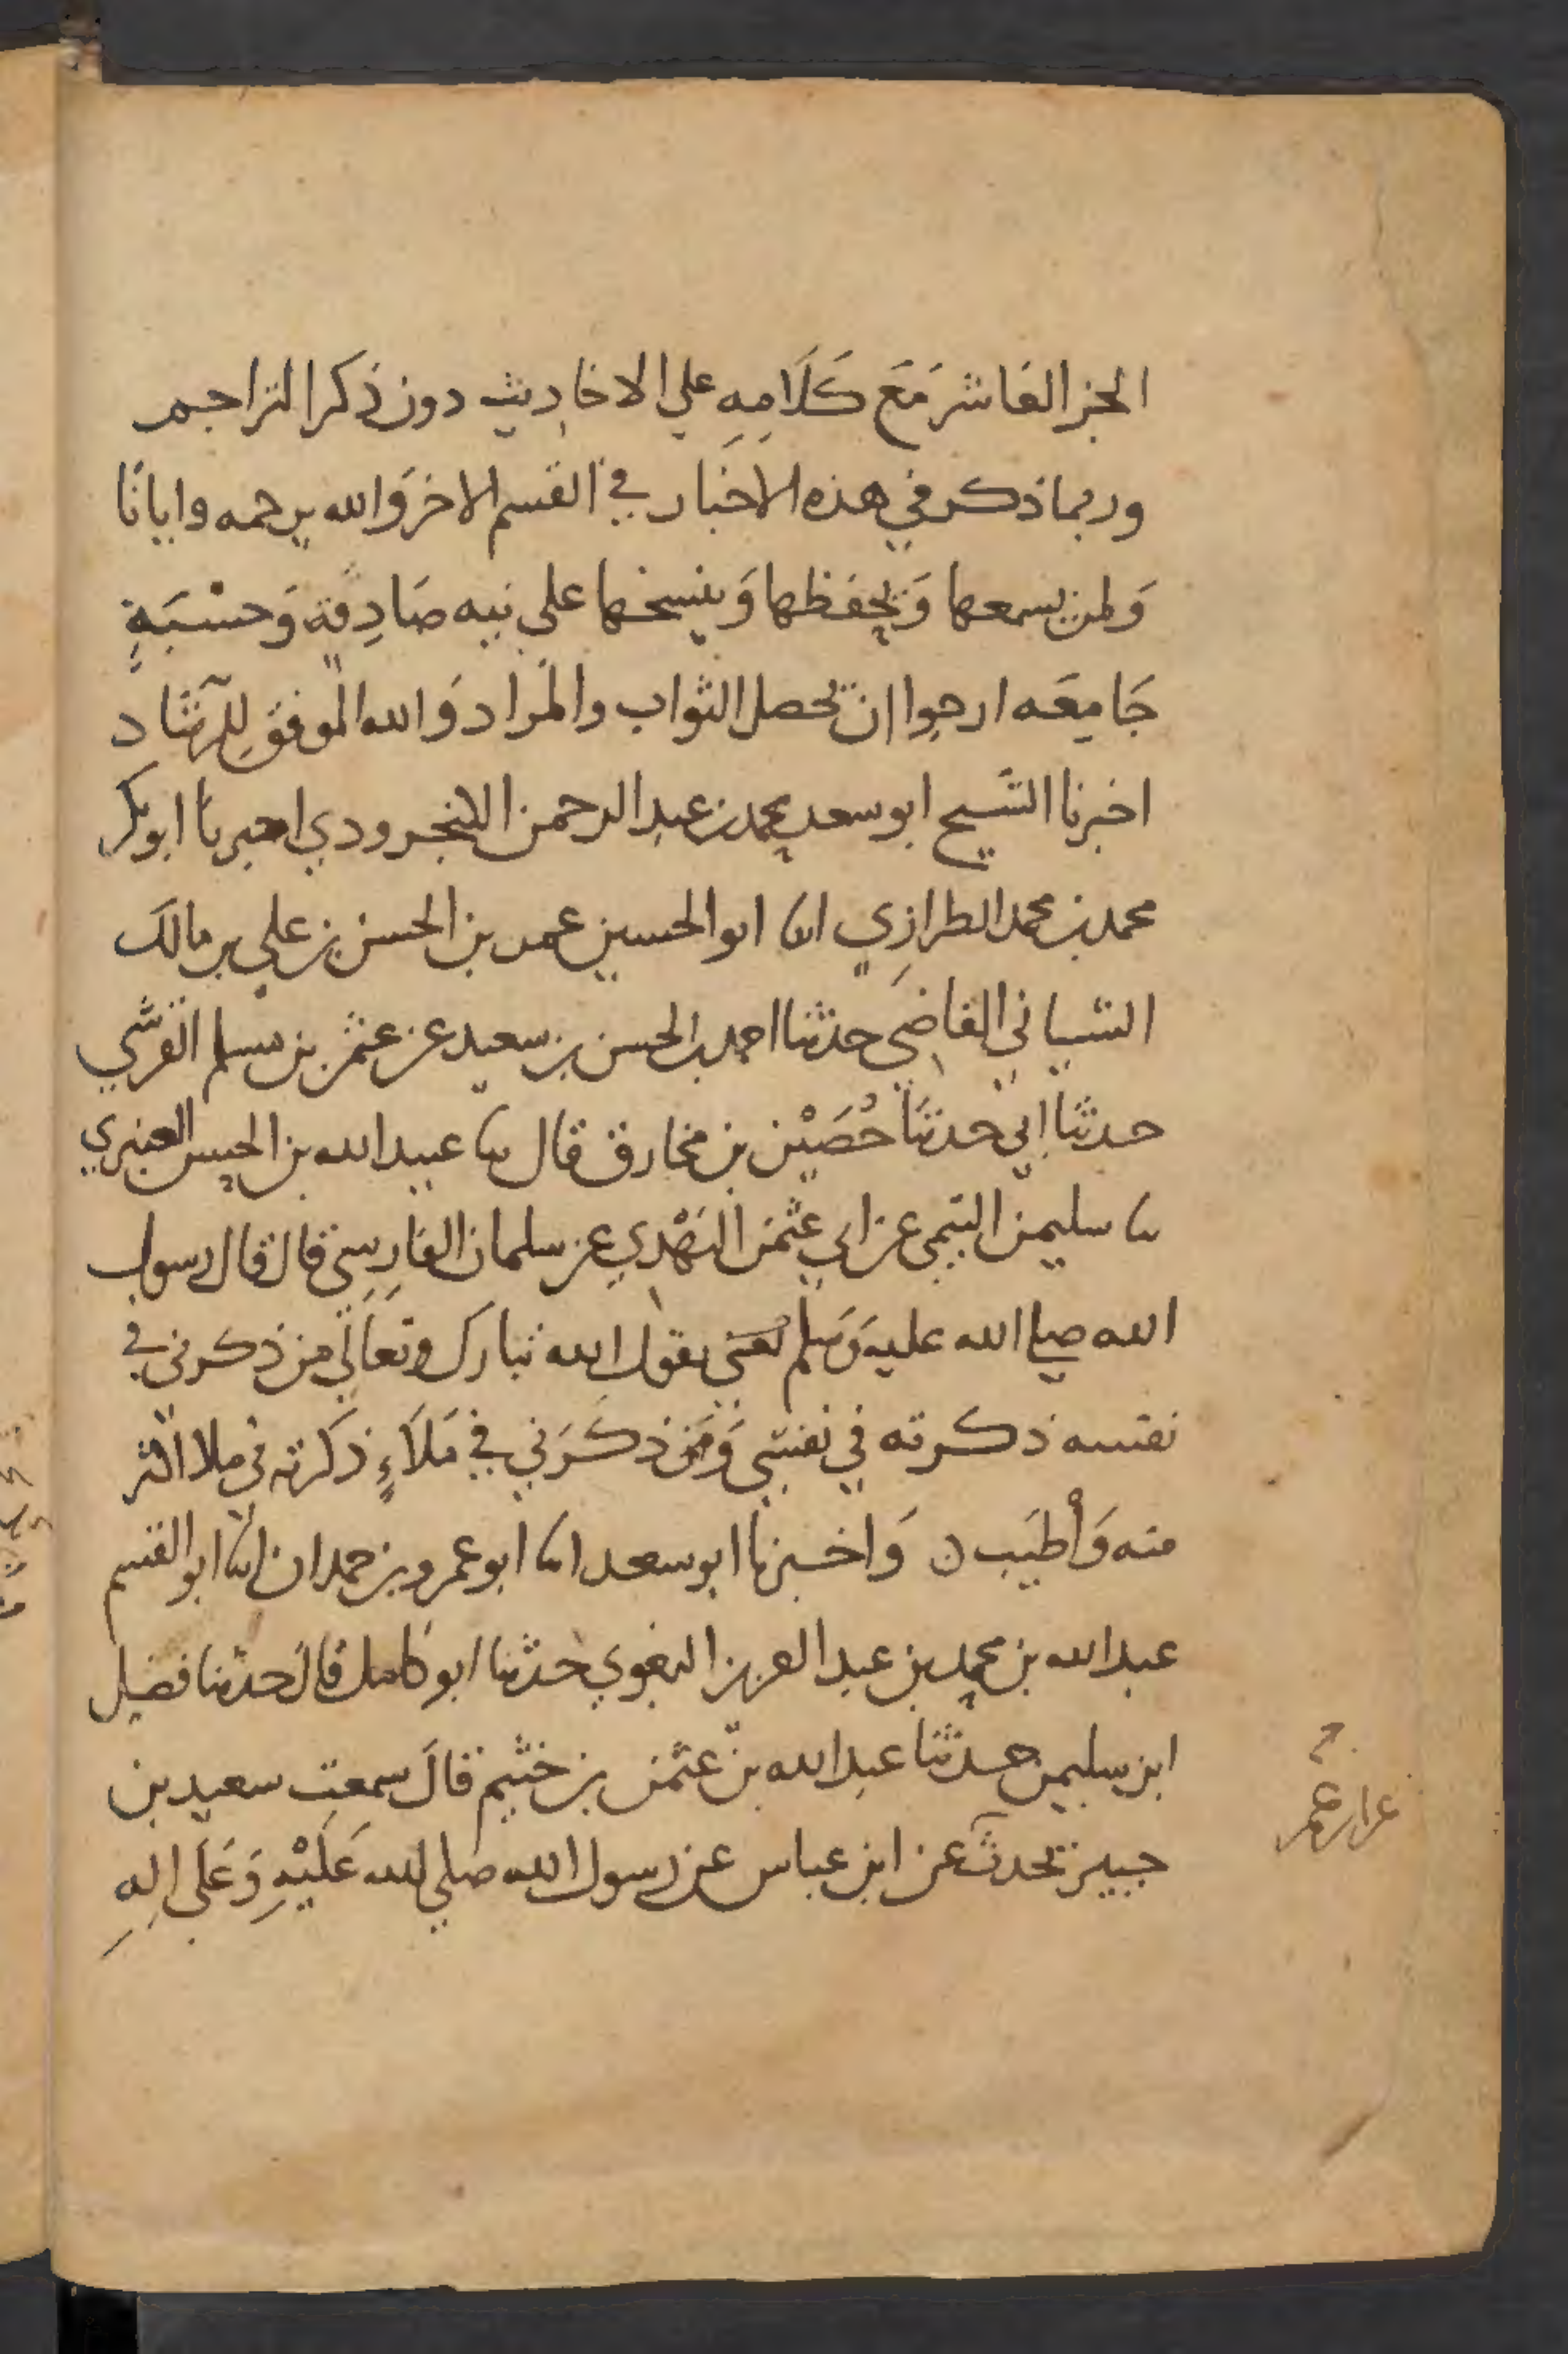 الجز العاشر مَعَ كَلَامِهِ علي الاحاديث دون ذكر التراجم
وربما ذكر في هذه الاخبار في القسم الاخر وَالله يرحمه وايانا
وَلمن يسمعها وَيحفظها وَينسخها علي نيه صَادِقة وَحسْبَةٍ
جَامِعَه ارجوا ان تحصل الثواب والمَراد وَالله الموفق لِلرشاد
اخبرنا الشيخ ابو سعد محمد بن عبد الرحمن الكنجرودي اخبرنا ابو بكر
محمد بن محمد الطرازِي انا ابو الحسين عمر بن الحسن بن علي بن مالك
الشيباني القاضي حدثنا احمد بن الحسن بن سعيد عن عثمن بن مسلم القرشي
حدثنا ابي حدثنا حُصَيْن بن مخارق قال نا عبيد الله بن الحسن العنبري
نا سليمن التيمي عن ابي عثمن النهْدِي عن سلمان الفارِسِي قال قال رسول
الله صلي الله عليه وَسلم يعني يقول الله تبارك وتعَالي من ذكرني في
نفسه ذكرته في نفسي وَمَن ذكَرَني في مَلَاءٍ ذكرته في ملا اكثر
منه وَأطيَب ن وَاخبرنا ابو سعد انا ابو عمرو بن حمدان انا ابو القسم
عبد الله بن محمد بن عبد العزيز البغوي حدثنا ابو كامل قال حدثنا فضيل
ابن سليمن حدثنا عبد الله بن عثمن بن خثيم قال سمعت سعيد بن
جبير يحدث عن ابن عباس عن رسول الله صلي الله عَلَيْهِ وَعَلَى الِهِ